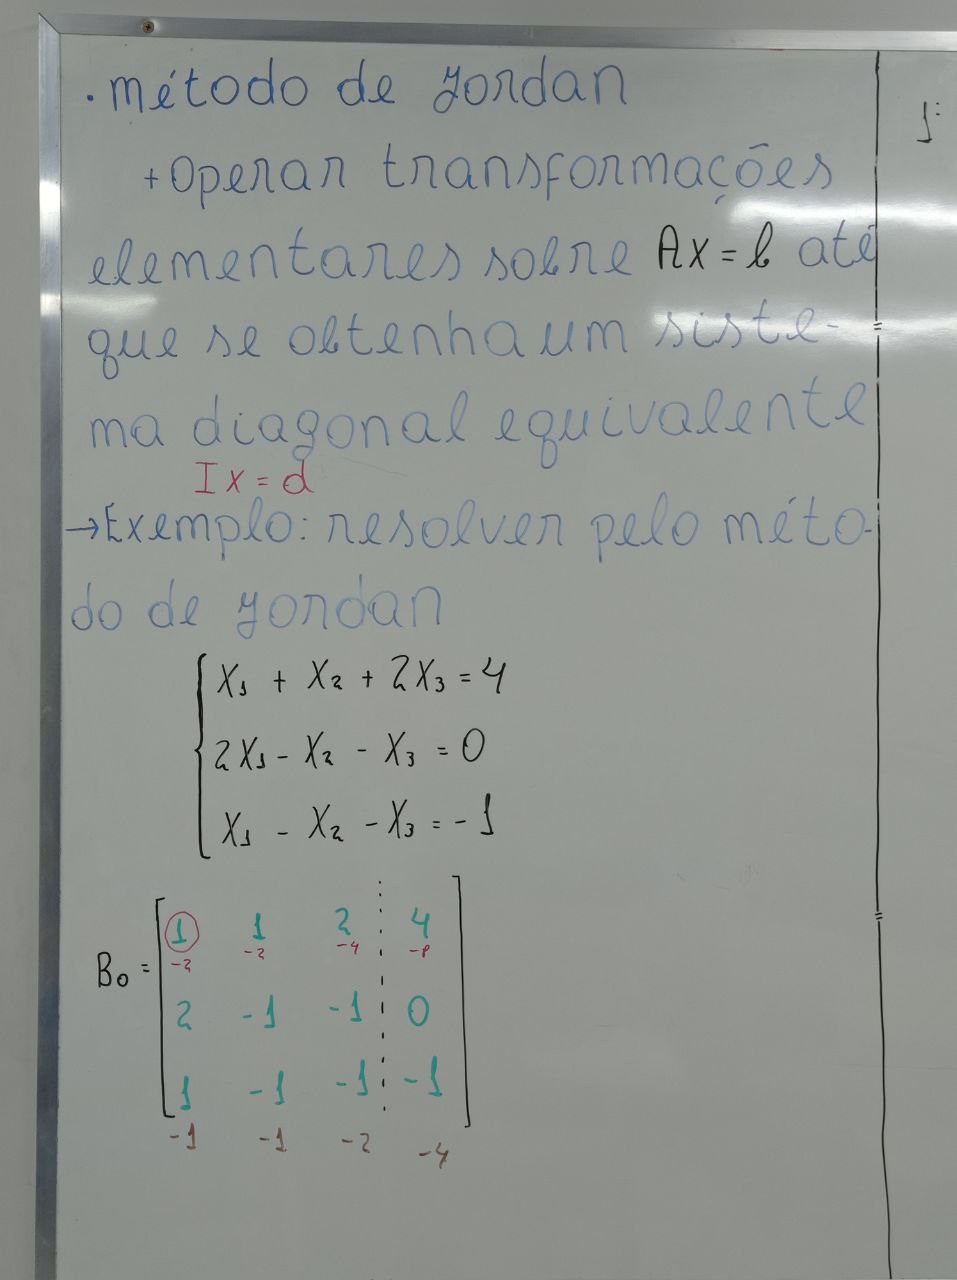 · método de Jordan
+ Operar transformações
elementares sobre Ax = b até
que se obtenha um siste-
ma diagonal equivalente
Ix = d
→ Exemplo: resolver pelo méto-
do de Jordan
X₁ + X₂ + 2X₃ = 4
2X₁ - X₂ - X₃ = 0
X₁ - X₂ - X₃ = -1
1 1 2 4
-2 -2 -4 -8
B₀ =
2 -1 -1 0
1 -1 -1 -1
-1 -1 -2 -4